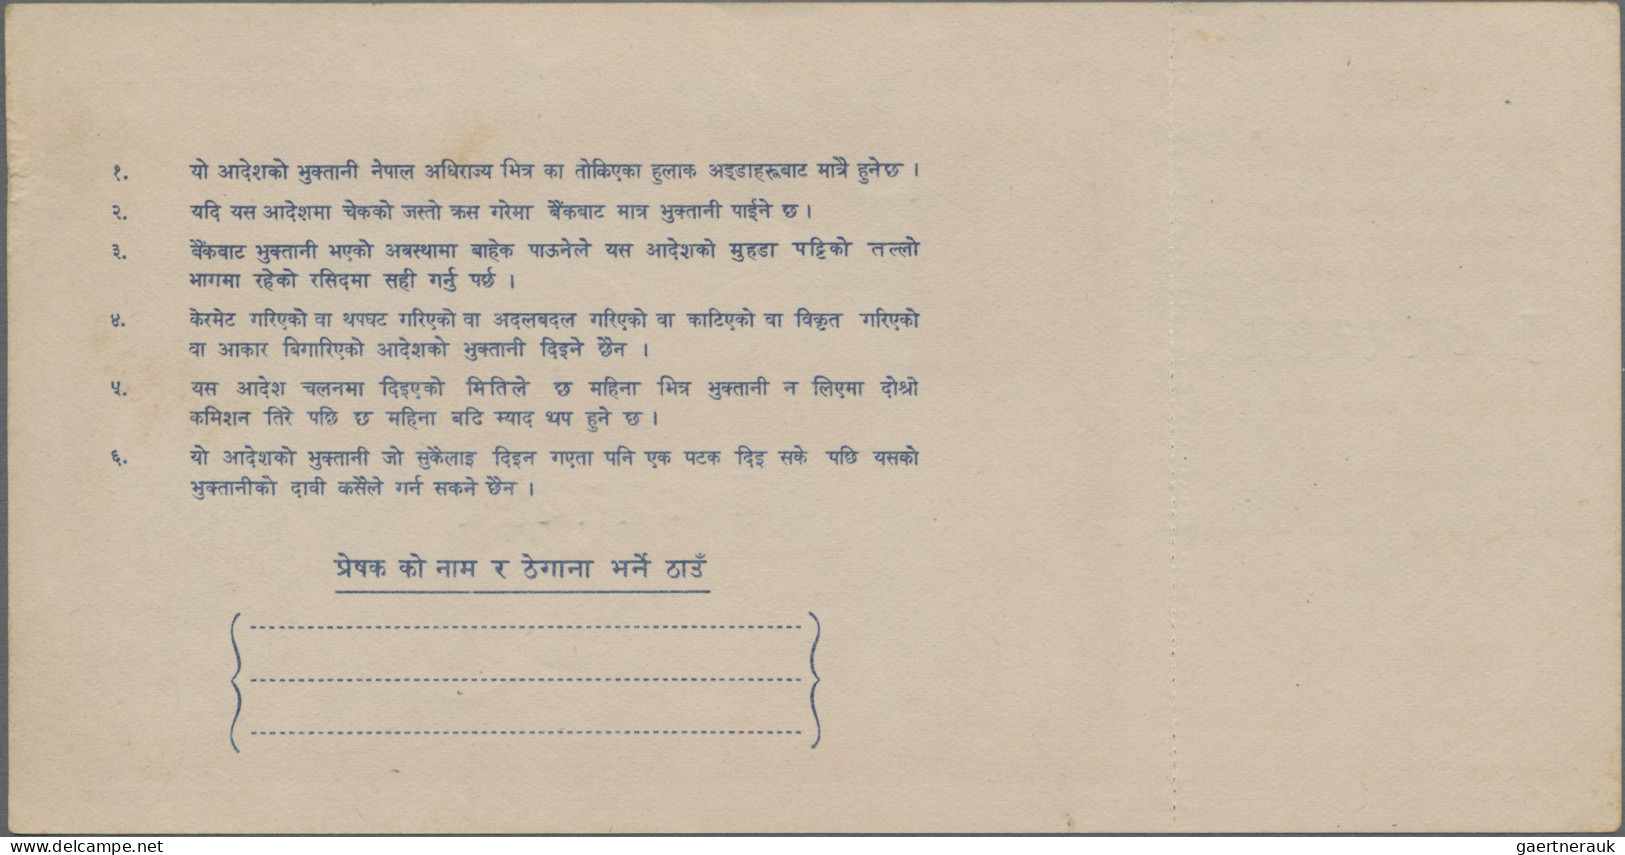 १. यो आदेशको भुक्तानी नेपाल अधिराज्य भित्र का तोकिएका हुलाक अड्डाहरूबाट मात्रै हुनेछ ।
२. यदि यस आदेशमा चेकको जस्तो क्रस गरेमा बैंकबाट मात्र भुक्तानी पाईने छ ।
३. बैंकबाट भुक्तानी भएको अवस्थामा बाहेक पाऊनेले यस आदेशको मुहडा पट्टिको तल्लो
भागमा रहेको रसिदमा सही गर्नु पर्छ ।
४. केरमेट गरिएको वा थपघट गरिएको वा अदलबदल गरिएको वा काटिएको वा विकृत गरिएको
वा आकार बिगारिएको आदेशको भुक्तानी दिइने छैन ।
५. यस आदेश चलनमा दिइएको मितिले छ महिना भित्र भुक्तानी न लिएमा दोश्रो
कमिशन तिरे पछि छ महिना बढि म्याद थप हुने छ ।
६. यो आदेशको भुक्तानी जो सुकैलाइ दिइन गएता पनि एक पटक दिइ सके पछि यसको
भुक्तानीको दावी कसैले गर्न सकने छैन ।
प्रेषक को नाम र ठेगाना भर्ने ठाउँ
www.delcampe.net
gaertnerauk